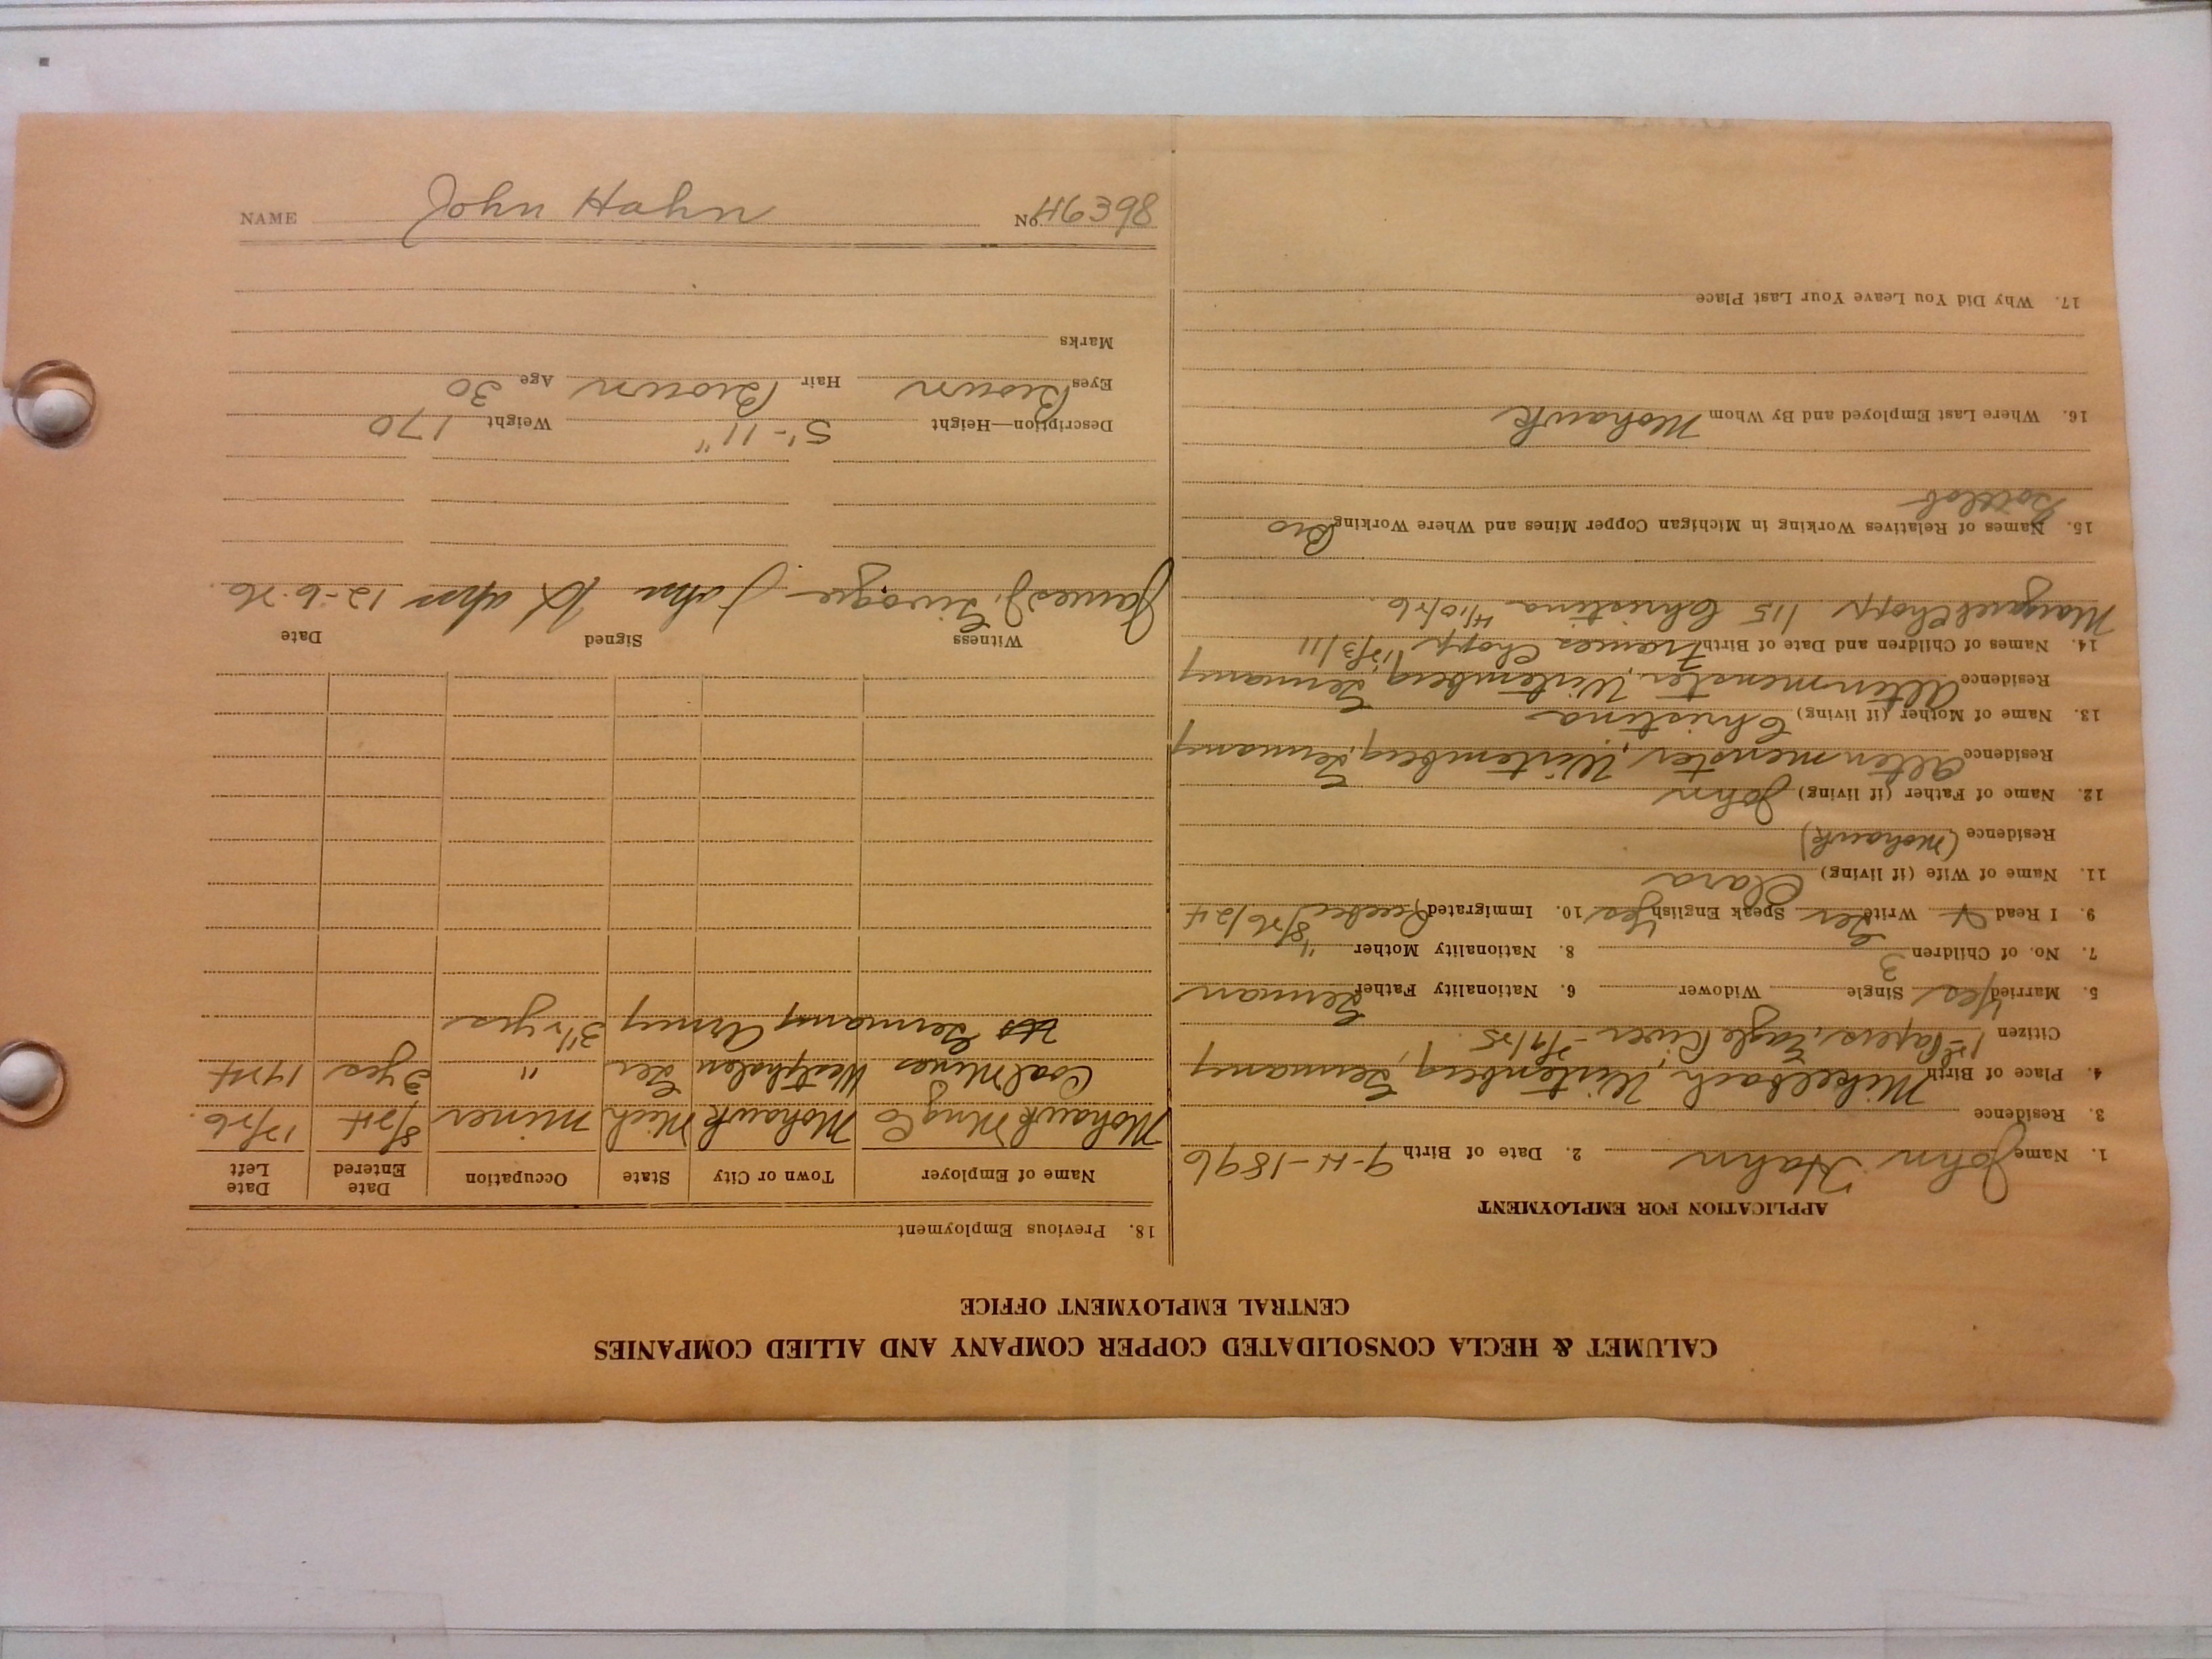 CALUMET & HECLA CONSOLIDATED COPPER COMPANY AND ALLIED COMPANIES
CENTRAL EMPLOYMENT OFFICE
APPLICATION FOR EMPLOYMENT
1. Name John Hahn 2. Date of Birth 9-4-1896
3. Residence
4. Place of Birth Mikelbach, Wirtenberg, Germany
Citizen 1st Papers, Eagle River - /9/25
5. Married Yes Single Widower 6. Nationality Father German
7. No. of Children 3 8. Nationality Mother "
9. I Read + Write Ger Speak English Yes 10. Immigrated Quebec 8/26/24
11. Name of Wife (if living) Clara
Residence (Mohawk)
12. Name of Father (if living) John
Residence Altenmenster, Wirtemberg, Germany
13. Name of Mother (if living) Christina
Residence Altenmenster, Wirtemberg, Germany
14. Names of Children and Date of Birth Frances Chopp 12/3/11
Margaret Chopp 115 Christina 4/10/26.
15. Names of Relatives Working in Michigan Copper Mines and Where Working Bro
Gottlob
16. Where Last Employed and By Whom Mohawk
17. Why Did You Leave Your Last Place
18. Previous Employment
Name of Employer Town or City State Occupation Date Entered Date Left
Mohawk Mng Co Mohawk Mich miner 8/24 12/26.
Coal Mines Westphalen Ger " 3 yrs 1924
Germany Army 3 1/2 yrs
Witness Signed Date
James J. John Hahn 12-6-26.
Description—Height 5'-11" Weight 170
Eyes Brown Hair Brown Age 30
Marks
NAME John Hahn No. 46398